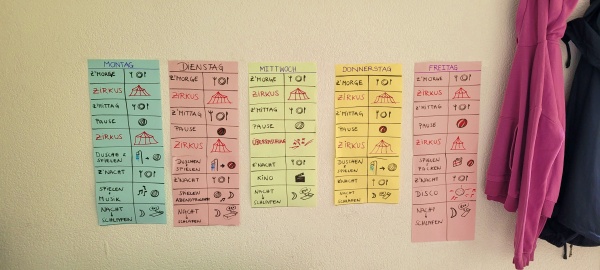 MONTAG
Z'MORGE
ZIRKUS
Z'MITTAG
PAUSE
ZIRKUS
DUSCHEN &
SPIELEN
Z'NACHT
SPIELEN
MUSIK
NACHT
&
SCHLAFEN
DIENSTAG
Z'MORGE
ZIRKUS
Z'MITTAG
PAUSE
ZIRKUS
DUSCHEN
SPIELEN
Z'NACHT
SPIELEN
NACHT
&
SCHLAFEN
MITTWOCH
Z'MORGE
ZIRKUS
Z'MITTAG
PAUSE
Z'NACHT
KINO
NACHT
& SCHLAFEN
DONNERSTAG
Z'MORGE
ZIRKUS
Z'MITTAG
PAUSE
ZIRKUS
DUSCHEN &
SPIELEN
Z'NACHT
NACHT
& SCHLAFEN
FREITAG
Z'MORGE
ZIRKUS
Z'MITTAG
PAUSE
ZIRKUS
SPIELEN
PACKEN
Z'NACHT
DISCO
NACHT
&
SCHLAFEN